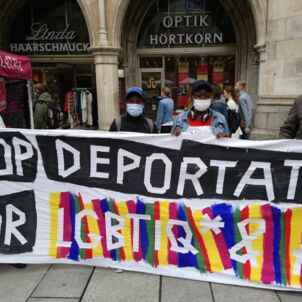 Linda
HAARSCHMUCK
OPTIK
HÖRTKORN
OP DEPORTAT
OR LGBTIQ*&